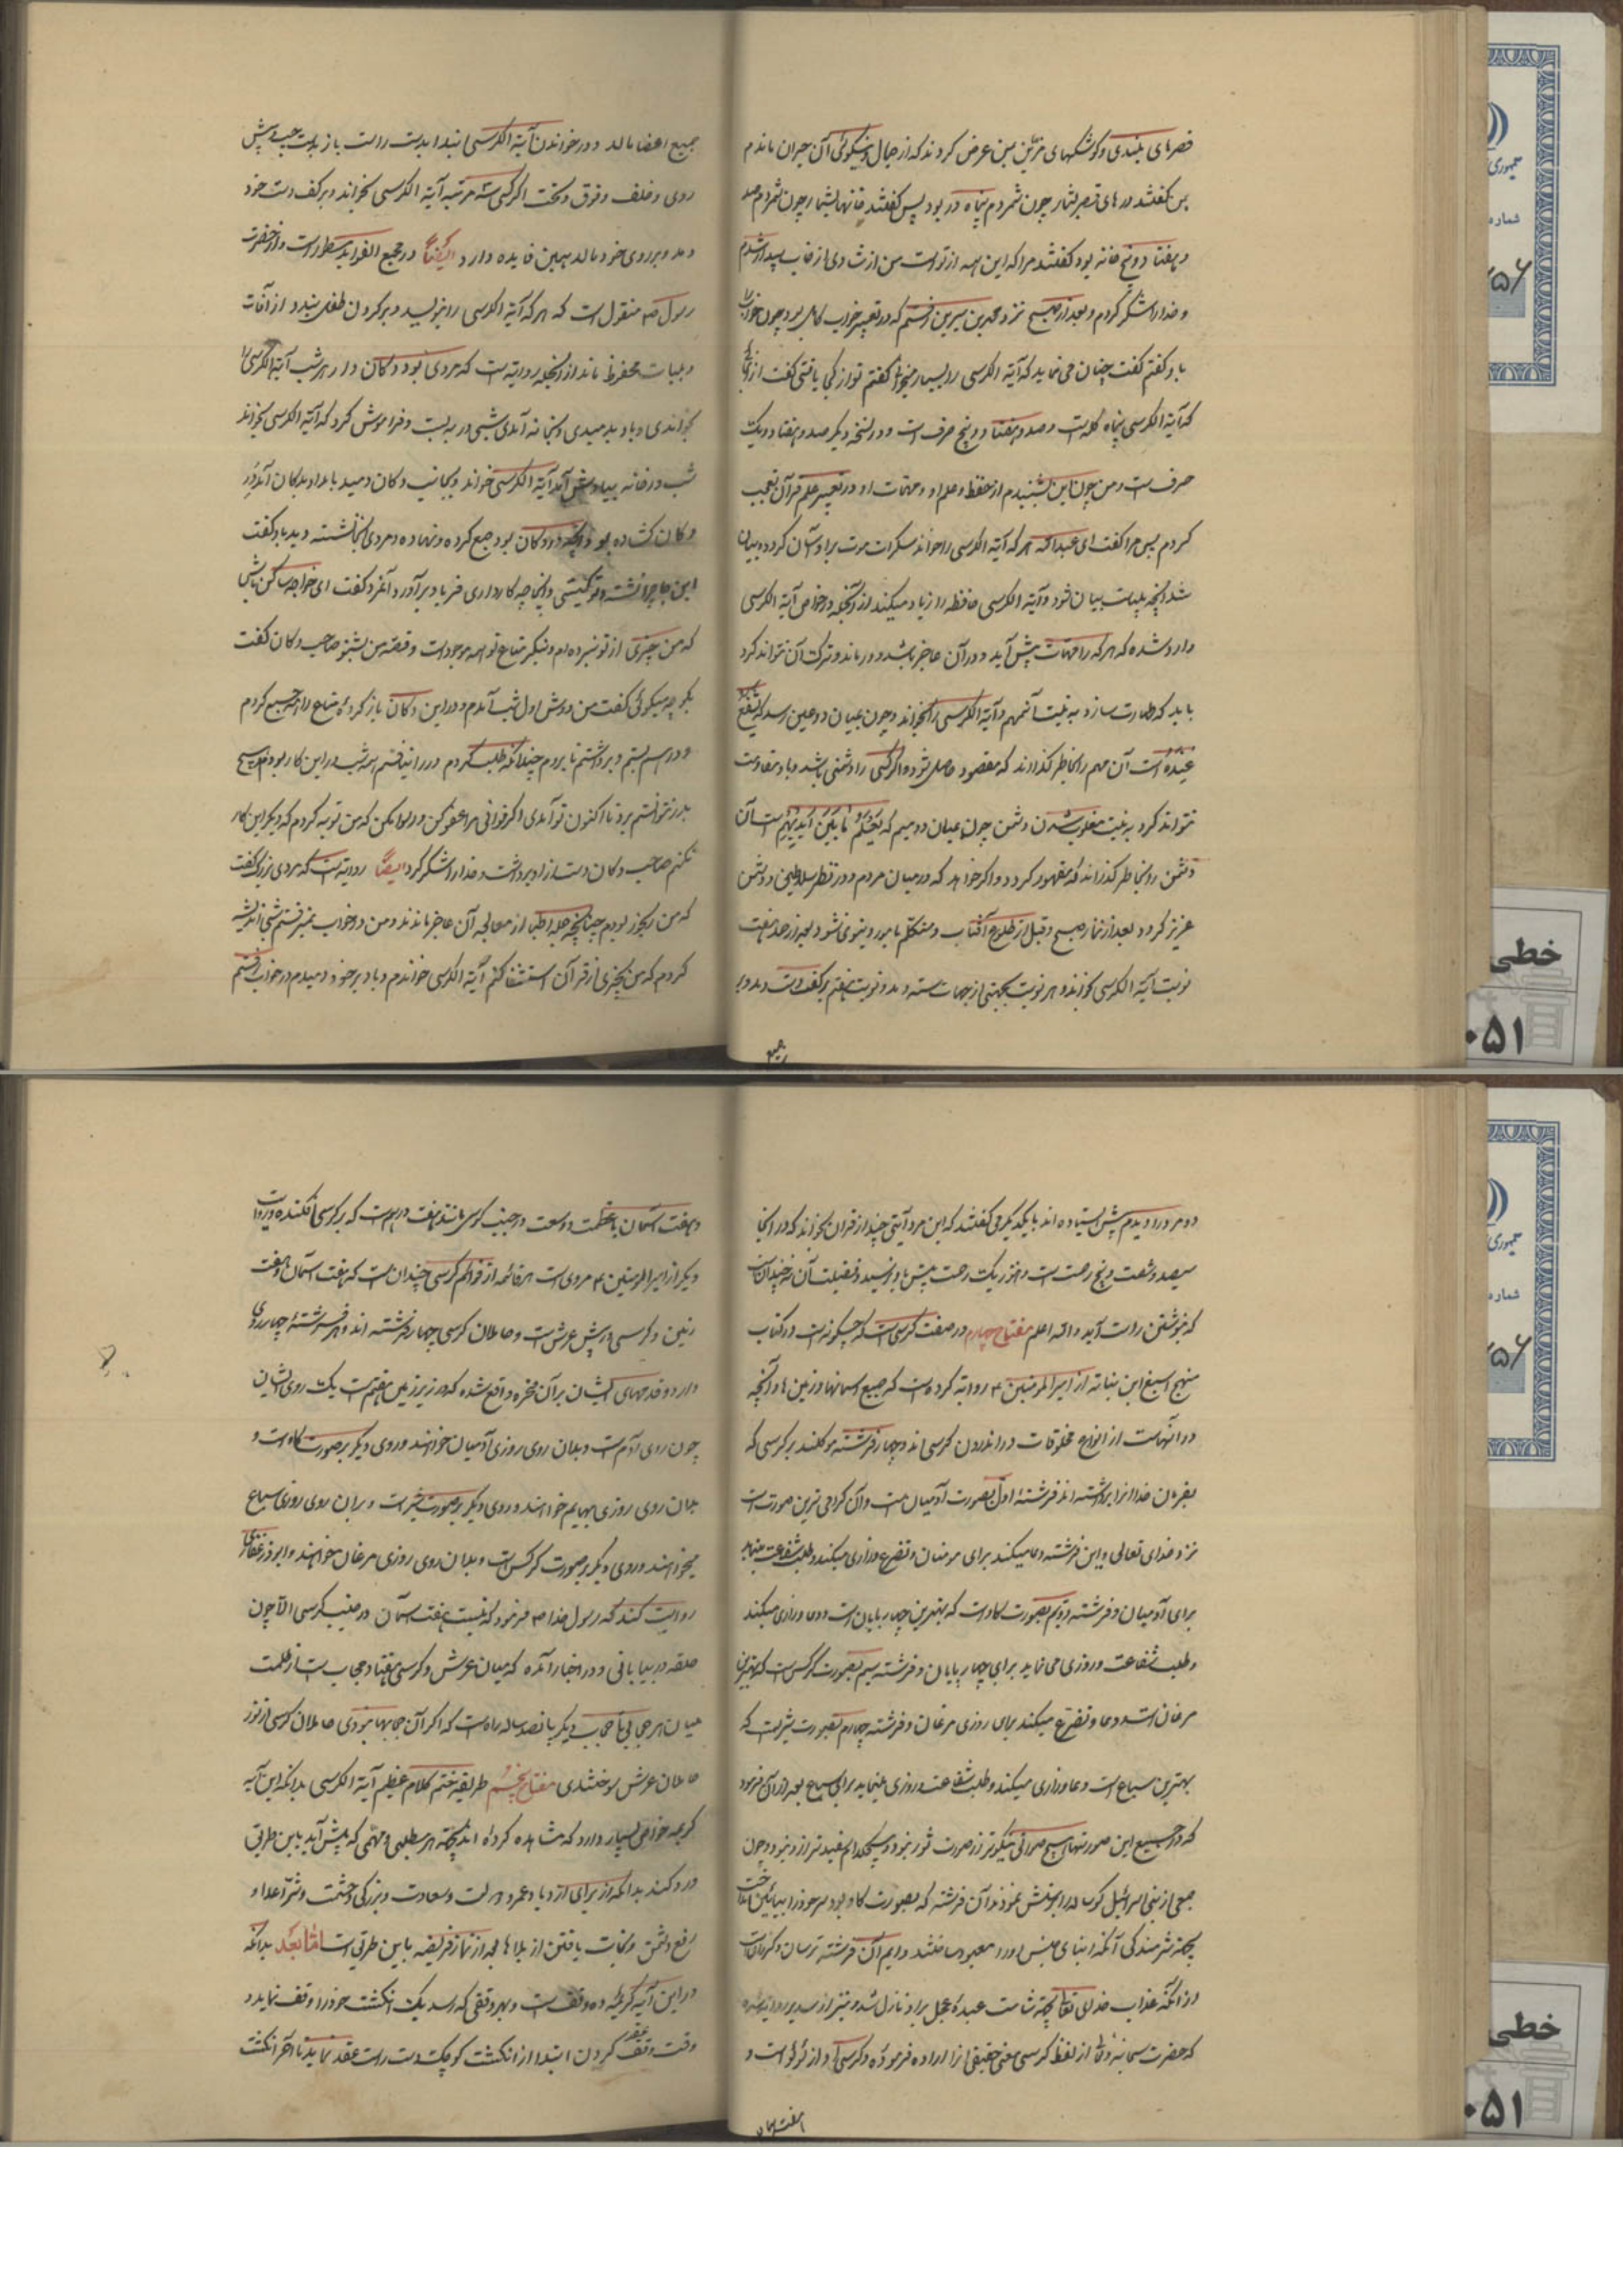 قصرهای بلندی و کوشکهای مزیّن بمن عرض کردند که از جمال و نیکوئی آن حیران ماندم
پس گفتند درهای قصر بشمار چون شمردم پنجاه در بود پس گفتند خانها بشمار چون شمردم صد
و هفتاد و پنج خانه بود گفتند مرا که این همه از تو است من از شادی از خواب بیدار شدم
و خدا را شکر کردم و بعد از صبح نزد محمد بن سیرین رفتم که در تعبیر خواب کامل بود چون خواب را
باو گفتم گفت چنان می نماید که آیة الکرسی را بسیار میخوانی گفتم تو از کجا یافتی گفت از آنجا
که آیة الکرسی پنجاه کلمه است و صد و هفتاد و پنج حرف است و در نسخه دیگر صد و هفتاد و یک
حرف است و من چون این بشنیدم از حفظ و علم او و مهمات او در تعبیر علم قرآن تعجب
کردم پس مرا گفت ای عبدالله هر که آیة الکرسی را خواند سکرات موت بر او آسان گردد و بیان
شد آنچه بپایست بیان شود و آیة الکرسی حافظه را زیاد میکند از آنجمله در خواص آیة الکرسی
وارد شده که هر که را مهمات پیش آید و در آن عاجز باشد و درماند و ترک آن نتواند کرد
باید که طهارت سازد به نیت آن مهم و آیة الکرسی را بخواند و چون بمیان دو عین رسد که یَشْفَعُ
عِنْدَهُ است آن مهم را بخاطر گذراند که مقصود حاصل شود و اگر کسی را دشمنی باشد و با او مقاومت
نتواند کرد به نیت مغلوب شدن دشمن چون بمیان دو میم که یَعْلَمُ مَا بَیْنَ أَیْدِیهِمْ است آن
دشمن را بخاطر گذراند که مقهور گردد و اگر خواهد که در میان مردم و در نظر سلاطین و دشمن
عزیز گردد بعد از نماز صبح و قبل از طلوع آفتاب و متکلم بامور دنیوی نشود بعد از حمد هفت
نوبت آیة الکرسی بخواند و هر نوبت بجهتی از جهات سته دمد و نوبت هفتم بر کف دست دمد و بر
جمیع
جمیع اعضا مالد و در خواندن آیة الکرسی ابتدا بدست راست باز بدست چپ و پیش
روی و خلف و فوق و تحت اگر کسی سه مرتبه آیة الکرسی بخواند و بر کف دست خود
دمد و بر روی خود مالد همین فایده دارد ایضاً در مجمع الفواید مسطور است و از حضرت
رسول ص منقول است که هر که آیة الکرسی را بنویسد و بر گردن طفلی بندد از آفات
و بلیات محفوظ ماند از آنجمله روایتست که مردی بود دوکان دار هر شب آیة الکرسی را
بخواندی و باو بدمیدی و بخانه آمدی شبی در به بست و فراموش کرد که آیة الکرسی بخواند
شب در خانه بیادش آمد آیة الکرسی خواند و بجانب دکان دمید بامداد بدکان آمد در
دکان کشاده بود و آنچه در دکان بود جمع کرده و نهاده و مردی آنجا نشسته دید باو گفت
این جا چرا نشسته و تو کیستی و اینجا چه کار داری فریاد برآورد آنمرد گفت ای خواجه ساکن باش
که من چیزی از تو نبرده ام و بنگر متاع تو همه موجود است و قصه من بشنو صاحب دکان گفت
بگو چه میگوئی گفت من دوش اول شب آمدم و در این دکان باز کرده متاع را جمیع کردم
و در هم بستم و برداشتم تا بروم چندانکه طلب کردم در را نیافتم همه شب در این کار بودم تا صبح
بدر نتوانستم برد تا اکنون تو آمدی اگر توانی مرا عفو کن و رسوا مکن که من توبه کردم که دیگر این کار
نکنم صاحب دکان دست از او برداشت و خدا را شکر کرد ایضاً روایتست که مردی بزرگ گفت
که من رنجور بودم چنانچه جمله اطبا از معالجه آن عاجز ماندند و من در خواب بمنبر رفتم شبی اندیشه
کردم که من بچیزی از قرآن استشفا کنم آیة الکرسی خواندم و باد بر خود دمیدم در خواب رفتم
دو مرد را دیدم پیش ایستاده اند بایکدیگر می گفتند که این مرد آیتی چند از قرآن بخواند که در آنجا
سیصد و شصت و پنج رحمت است و هنوز یک رحمت پیش باو نرسید و فضیلت آن نه چندانست
که بنوشتن راست آید والله اعلم مفتاح چهارم در صفت کرسی است که چگونه است در کتاب
منهج اصبغ ابن نباته از امیرالمؤمنین ع روایة کرده است که جمیع آسمانها و زمین ها و آنچه
در آنهاست از انواع مخلوقات در اندرون کرسی اند و چهار فرشته موکلند بر کرسی که
بفرمان خدا آنرا برداشته اند فرشته اول بصورت آدمیان است و آن گرامی ترین صورت است
نزد خدای تعالی و این فرشته دعا میکند برای مؤمنان و تضرع و زاری میکند و طلب شفاعت مینماید
برای آدمیان و فرشته دویم بصورت گاو است که بهترین چهارپایان است و دعا و زاری میکند
و طلب شفاعت و روزی می نماید برای چهارپایان و فرشته سیم بصورت کرکس است که بهترین
مرغان است و دعا و تضرع میکند برای روزی مرغان و فرشته چهارم بصورت شیر است که
بهترین سباع است و دعا و زاری میکند و طلب شفاعت و روزی مینماید برای سباع بعد از آن فرمود
که در جمیع این صورتها هیچ صورتی نیکوتر از صورت ثور نبود و هیچکدام مفیدتر از او نبود و چون
جمعی از بنی اسرائیل گوساله را پرستش نمودند آن فرشته که بصورت گاو بود سر خود را بپائین انداخت
بجهة شرمندگی آنکه ابنای جنس او را معبود ساختند و دایم آن فرشته ترسان و گریان است
از آنکه عذاب خدای تعالی بجهة شامت عبدهٔ عجل بر او نازل شود و نیز از سدیر روایت شده
که حضرت سبحانه و تعالی از لفظ کرسی معنی حقیقی از آن اراده فرموده و کرسی او از لؤلؤ است و
هفت آسمان
و هفت آسمان با عظمت و وسعت در جنب کرسی مانند هفت درهم است که بر کرسی افکنده و در روایت
دیگر از امیرالمؤمنین ع مروی است هر قائمه از قوائم کرسی چندان است که هفت آسمان و هفت
زمین و کرسی در پیش عرش است و حاملان کرسی چهار فرشته اند و هر فرشتهٔ چهار روی
دارد و قدمهای ایشان بر آن صخره واقع شده که در زیر زمین هفتم است یک روی ایشان
چون روی آدم است و بدان روی روزی آدمیان خواهند و روی دیگر بر صورت گاو است و
بدان روی روزی بهایم خواهند و روی دیگر بر صورت شیر است و بدان روی روزی سباع
میخواهند و روی دیگر بر صورت کرکس است و بدان روی روزی مرغان خواهند و ابوذر غفاری
روایت کند که رسول خدا ص فرمود که نیست هفت آسمان در جنب کرسی الا چون
حلقه در بیابانی و در اخبار آمده که میان عرش و کرسی هفتاد حجاب است از ظلمت
میان هر حجابی تا حجاب دیگر پانصد ساله راه است که اگر آن حجابها نبودی حاملان کرسی از نور
حاملان عرش سوختندی مفتاح پنجم طریقه ختم کلام عظیم آیة الکرسی بدانکه این آیه
کریمه خواص بسیار دارد که مشاهده کرده اند بجهة هر مطلبی و مهمی که پیش آید باین طریق
ورد کنند بدانکه از برای ازدیاد عمر و دولت و سعادت و بزرگی و حشمت و شر اعدا و
رفع دشمن و نجات یافتن از بلاها بعد از نماز فریضه باین طریق است امّا بعد بدانکه
در این آیه کریمه ده وقف است و بهر وقفی که رسد یک انگشت خود را وقف نماید و
وقت وقف کردن ابتدا از انگشت کوچک دست راست عقد نماید تا آخر انگشت
عقد
جمهوری
شماره
۷۵۶
خطی
۰۵۱
جمهوری
شماره
۷۵۶
خطی
۰۵۱